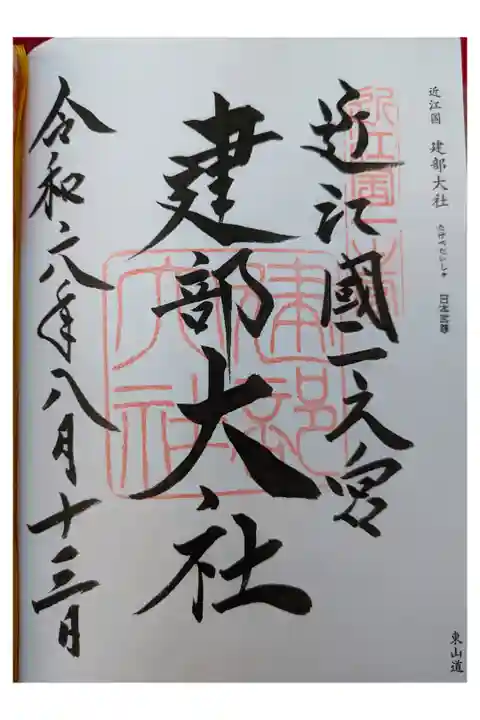 近江国 建部大社 たけべだいしゃ 日本武尊
東山道
近江國一之宮
建部大社
建部大社
令和六年八月十三日